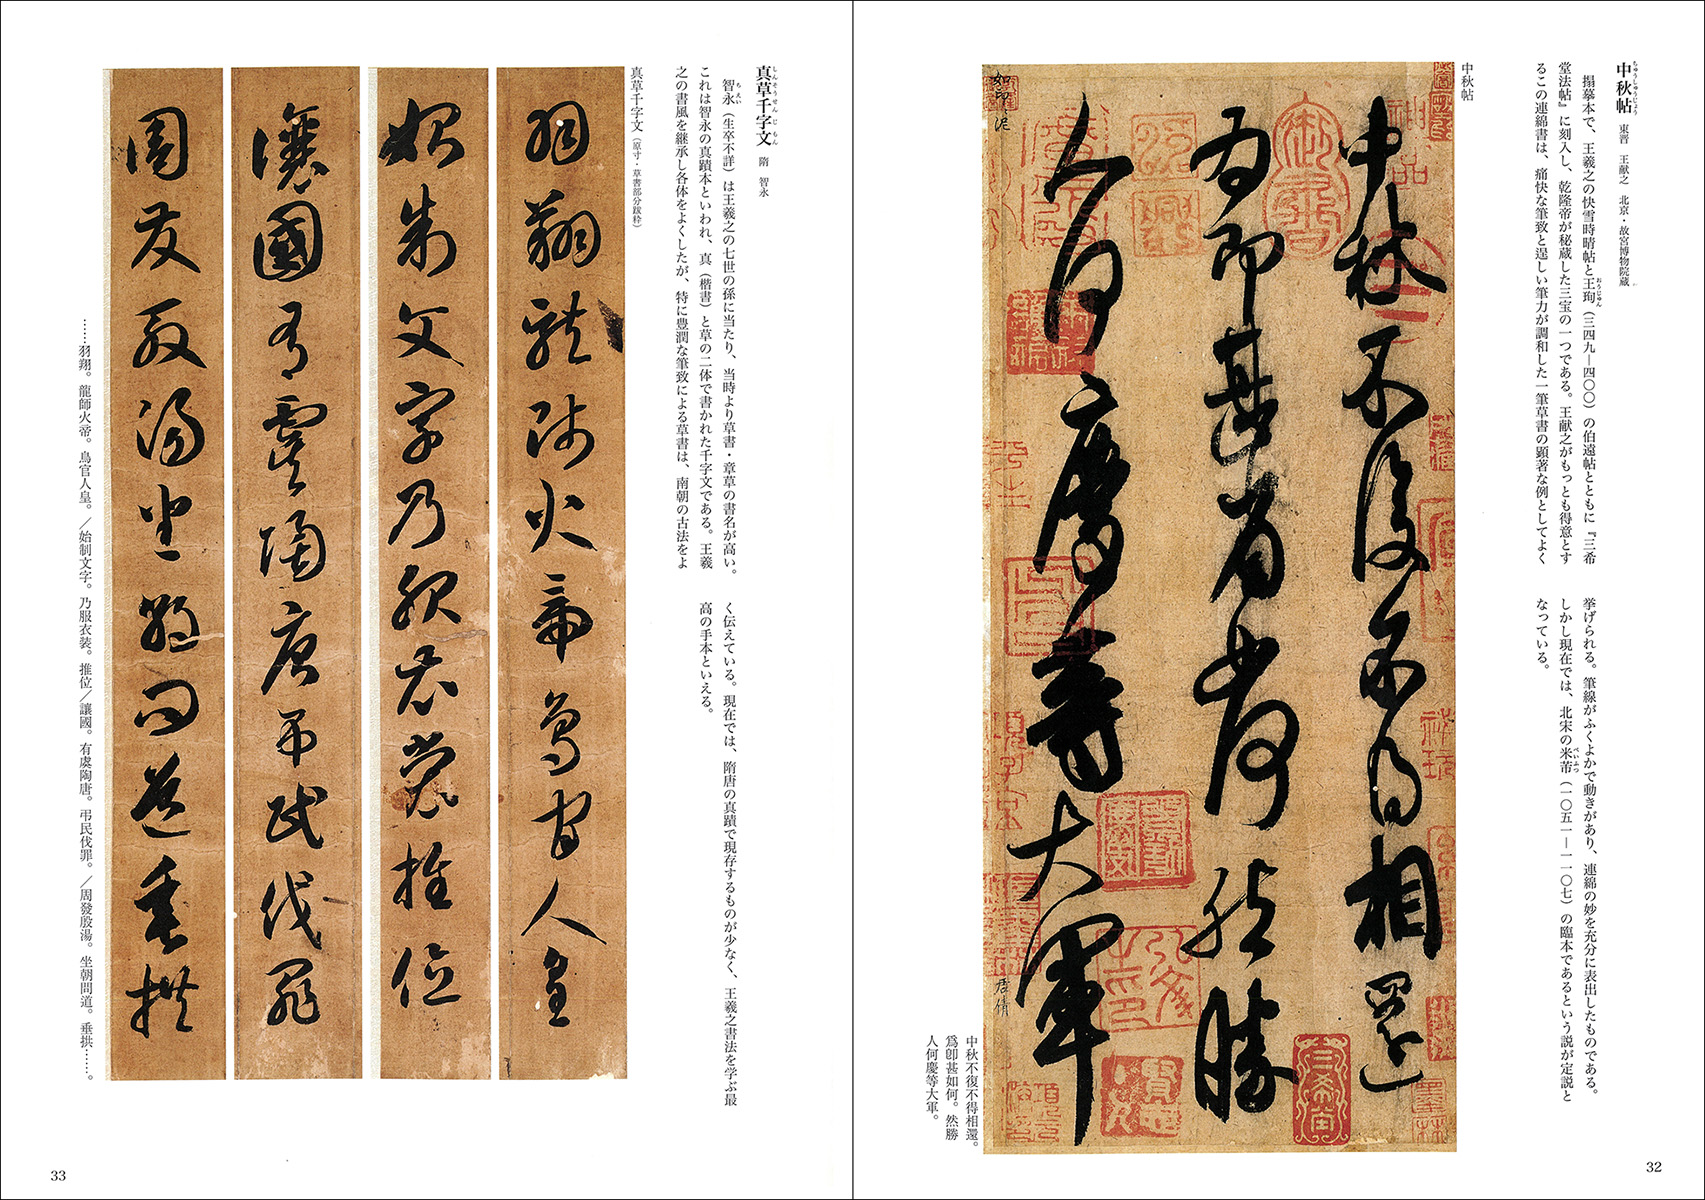 中秋帖 東晋 王献之 北京・故宮博物院蔵
搨摹本で、王羲之の快雪時晴帖と王珣(三四九—四〇〇)の伯遠帖とともに『三希
堂法帖』に刻入し、乾隆帝が秘蔵した三宝の一つである。王献之がもっとも得意とす
るこの連綿書は、痛快な筆致と逞しい筆力が調和した一筆草書の顕著な例としてよく
挙げられる。筆線がふくよかで動きがあり、連綿の妙を充分に表出したものである。
しかし現在では、北宋の米芾(一〇五一—一一〇七)の臨本であるという説が定説と
なっている。
中秋帖
中秋不復不得相還
為即甚省如何然勝
人何慶等大軍
中秋不復不得相還。
爲卽甚如何。然勝
人何慶等大軍。
32
真草千字文 隋 智永
智永(生卒不詳)は王羲之の七世の孫に当たり、当時より草書・章草の書名が高い。
これは智永の真蹟本といわれ、真(楷書)と草の二体で書かれた千字文である。王羲
之の書風を継承し各体をよくしたが、特に豊潤な筆致による草書は、南朝の古法をよ
く伝えている。現在では、隋唐の真蹟で現存するものが少なく、王羲之書法を学ぶ最
高の手本といえる。
真草千字文(原寸・草書部分跋粋)
羽翔龍師火帝鳥官人皇
始制文字乃服衣裳推位
讓國有虞陶唐弔民伐罪
周發殷湯坐朝問道垂拱
……羽翔。龍師火帝。鳥官人皇。/始制文字。乃服衣装。推位/讓國。有虞陶唐。弔民伐罪。/周發殷湯。坐朝問道。垂拱……。
33